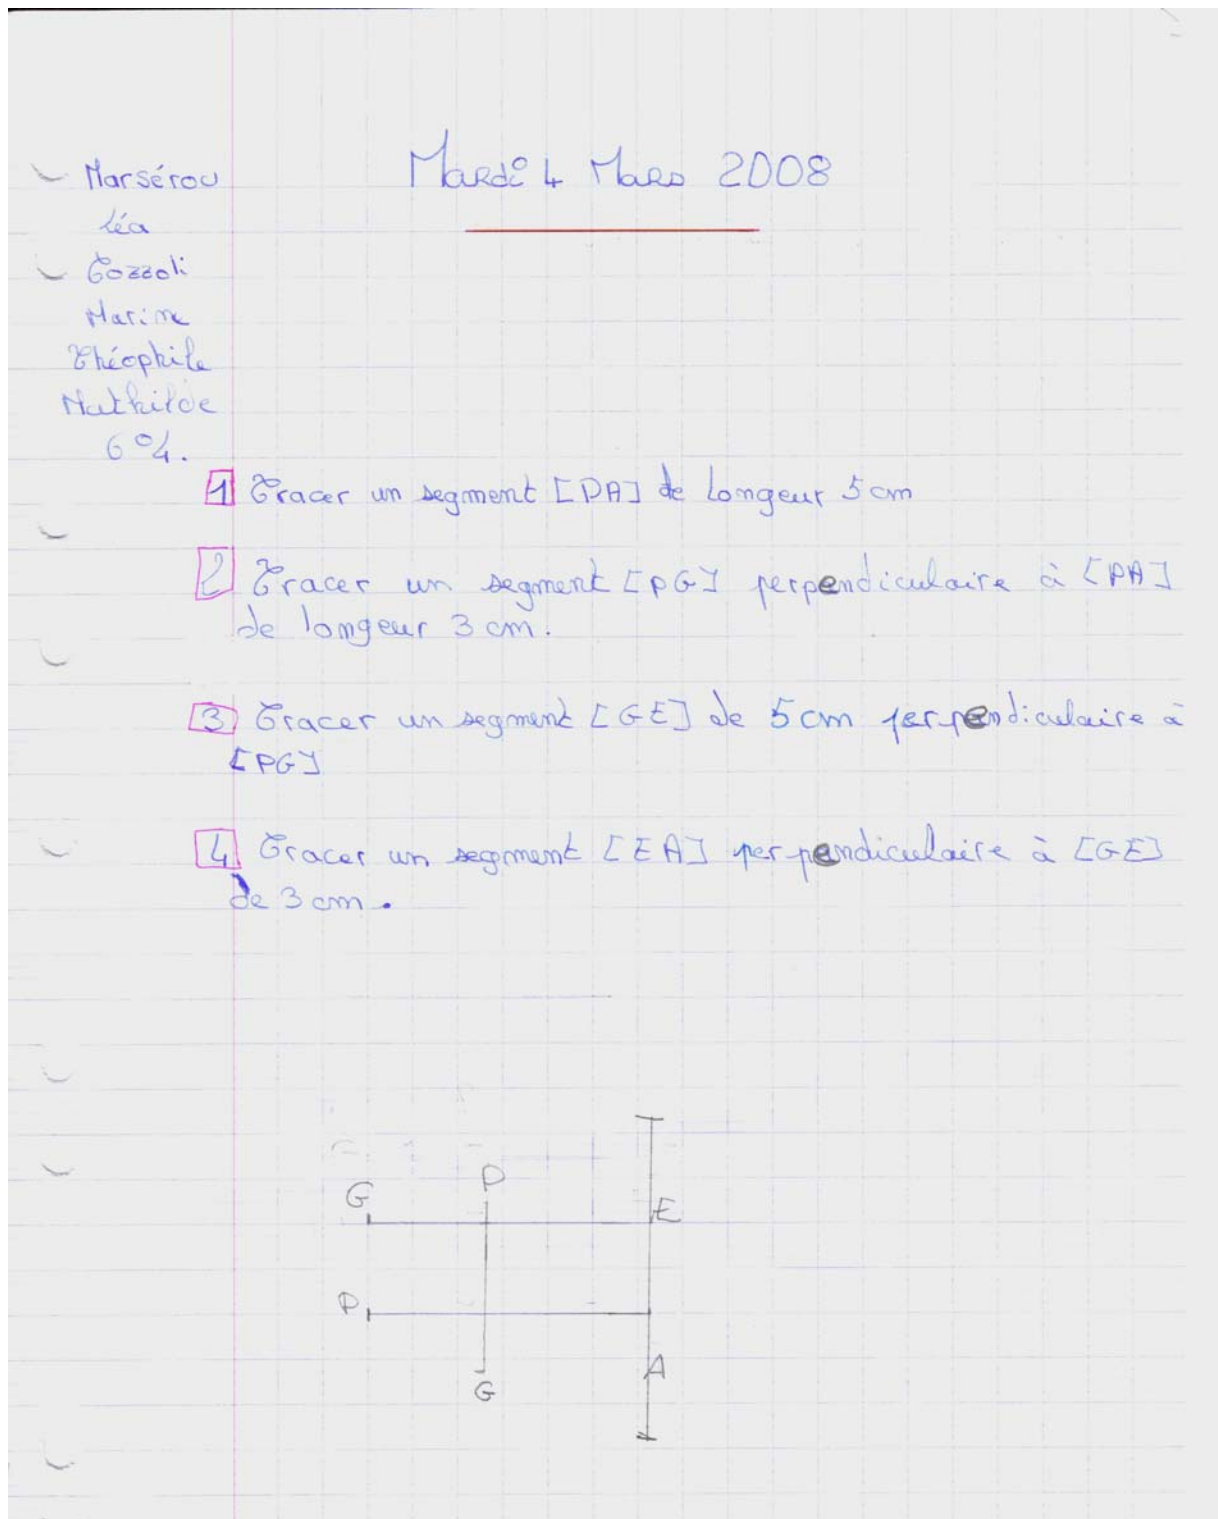 Mardi 4 Mars 2008
Marsérou
Léa
Tozzoli
Marine
Théophile
Mathilde
6°4.
1 Tracer un segment [PA] de longeur 5 cm
2 Tracer un segment [PG] perpendiculaire à [PA]
de longeur 3 cm.
3 Tracer un segment [GE] de 5 cm perpendiculaire à
[PG]
4 Tracer un segment [EA] perpendiculaire à [GE]
de 3 cm.
G P E
P
A
G